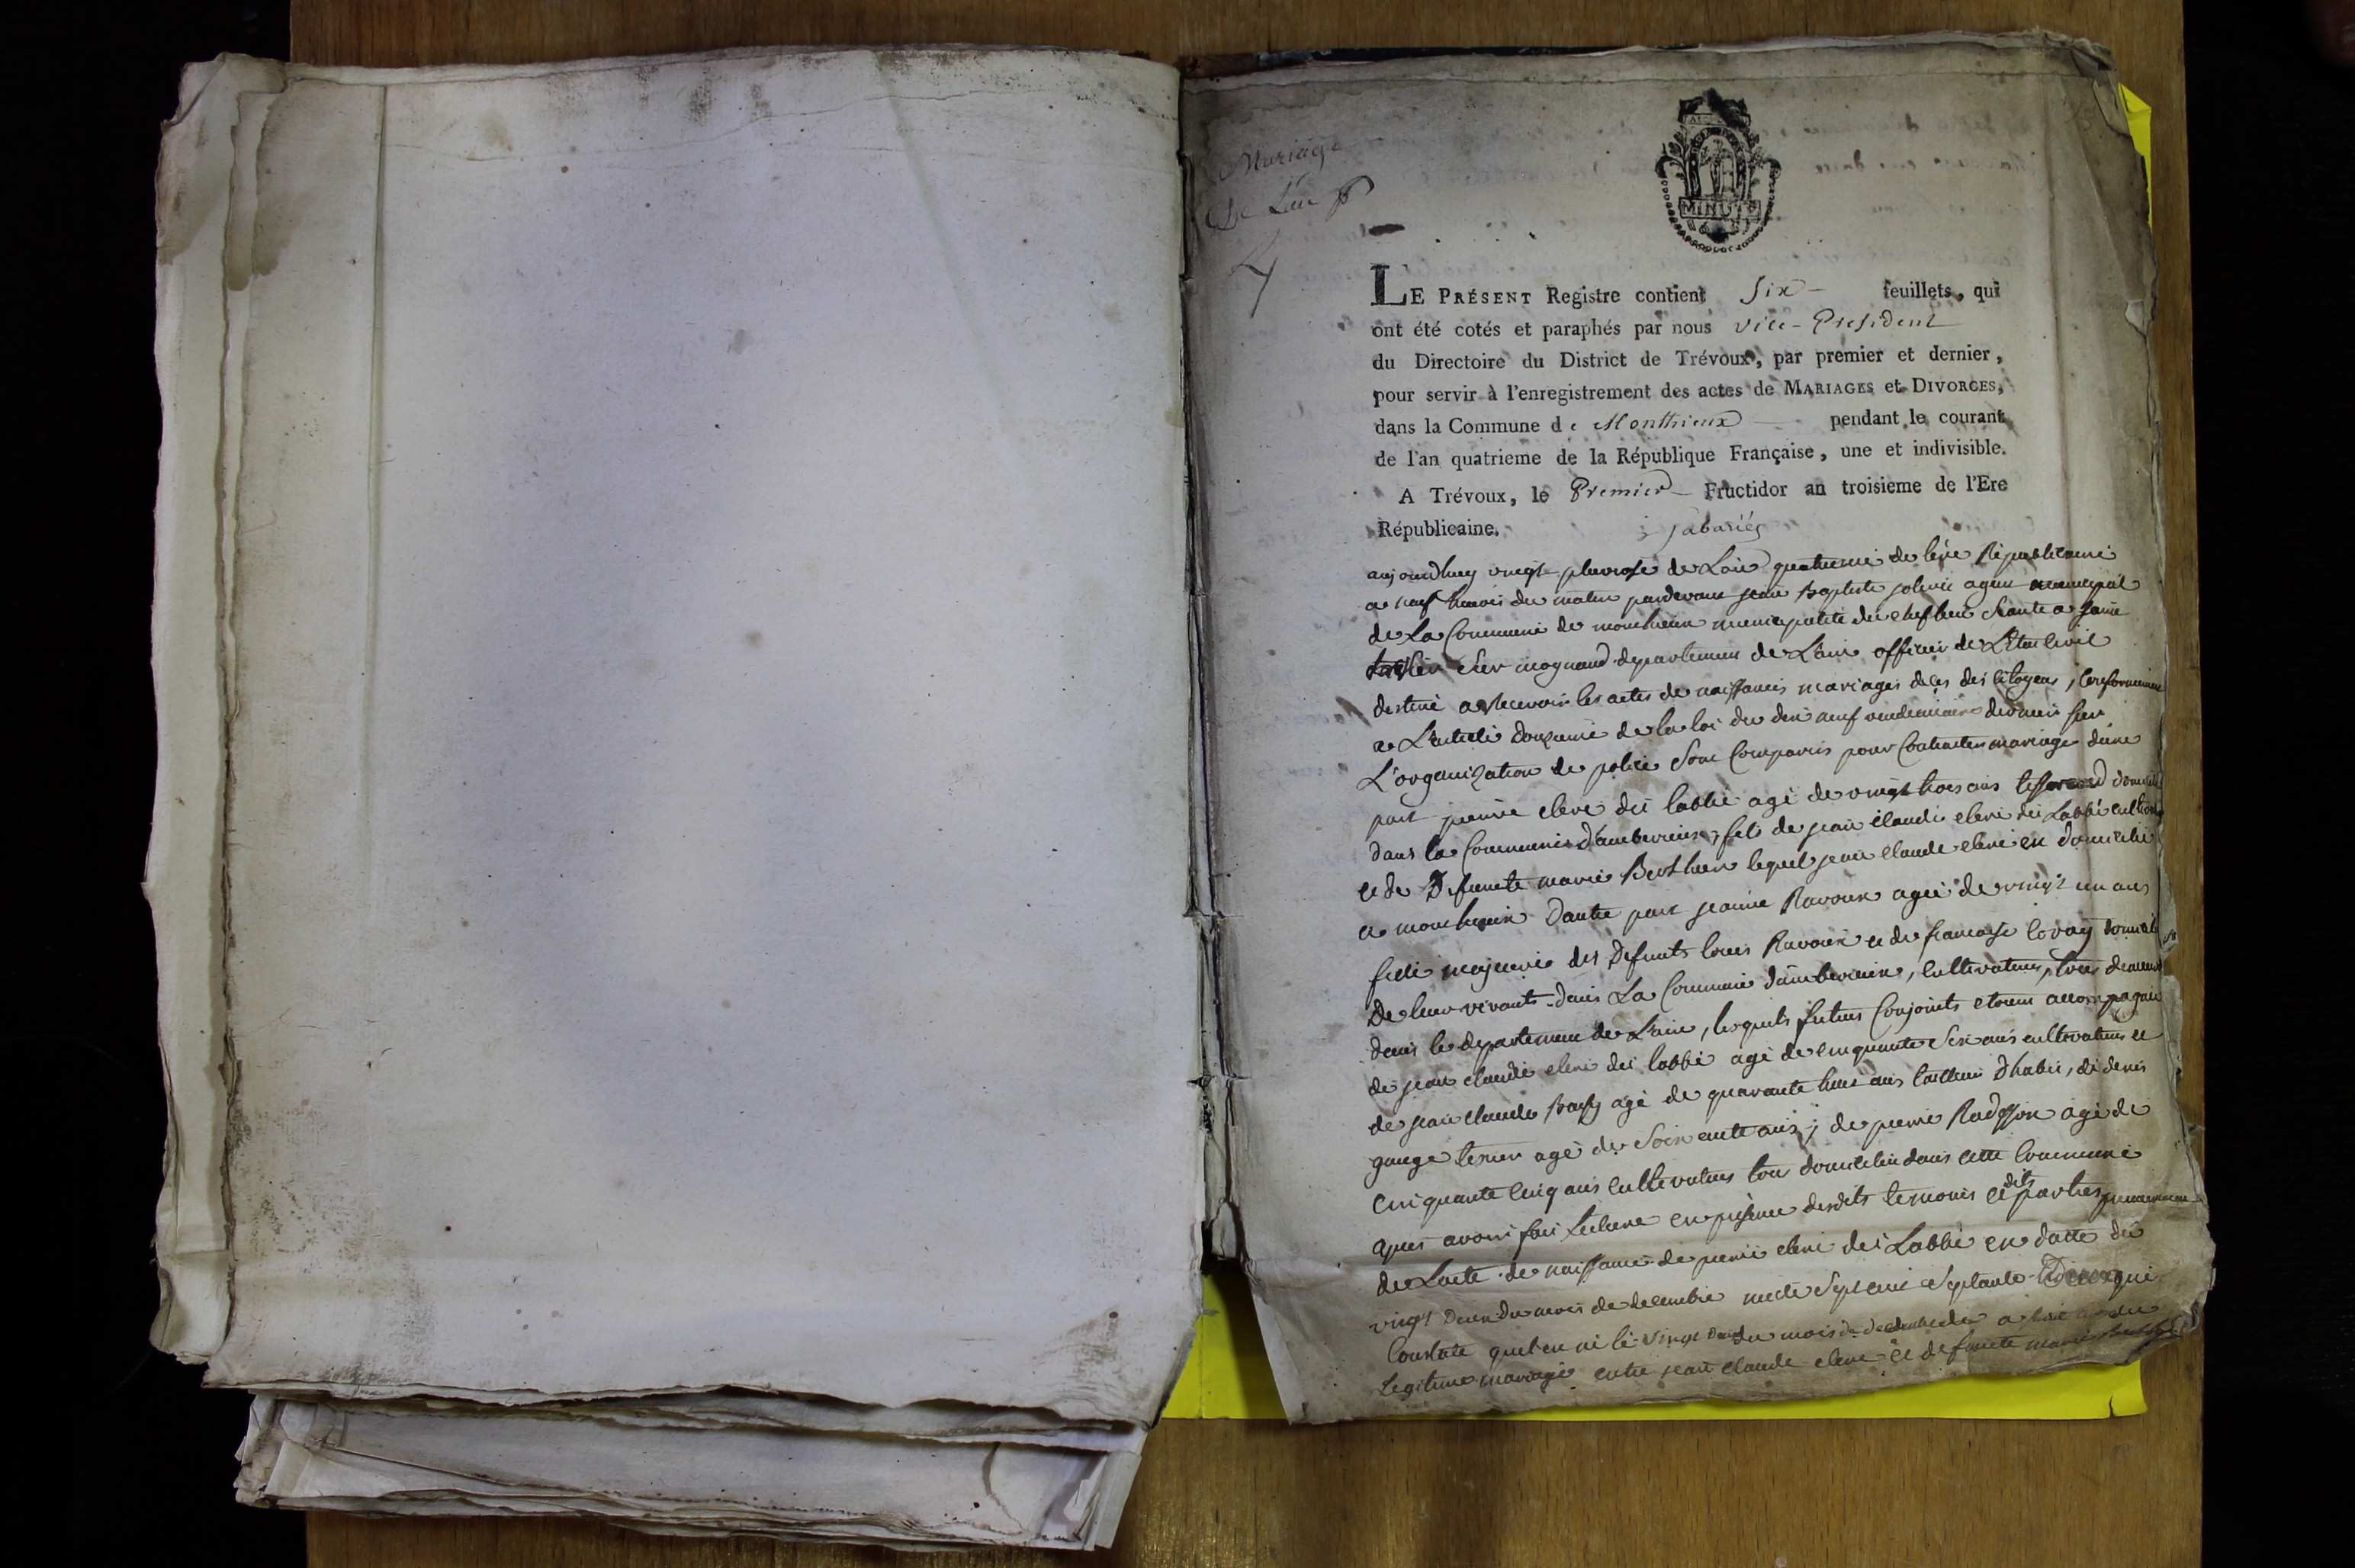 Mariage
De L'an
4
MINUTE
LE PRÉSENT Registre contient Six feuillets, qui
ont été cotés et paraphés par nous Vice-President
du Directoire du District de Trévoux, par premier et dernier,
pour servir à l'enregistrement des actes de MARIAGES et DIVORCES,
dans la Commune de Monthieux pendant le courant
de l'an quatrieme de la République Française, une et indivisible.
A Trévoux, le Premier Fructidor an troisieme de l'Ere
Républicaine.
aujourdhuy vingt pluviose de Lan quatrieme de lere Republicaine
a neuf heures du matin pardevant jean Baptiste agent municipal
de La Commune de monthieux municipalité du chef lieu
departement de Lain officier de Letat Civil
destiné a Recevoir les actes de naissances mariages deces des Citoyens, Conformement
a L'article douzieme de la loi du dix neuf vendemiaire dernier sur
L'organization de police Sont Comparus pour Contracter mariage dune
part pierre clere dit labbé agé de vingt trois ans
dans la Commune d'amberieux, fils de jean claude clere dit Labbé
et de Defuncte marie Berthier lequel jean claude clere est domicilié
a monthieux Dautre part jeanne Ravoux agée de vingt un ans
fille majeure des Defunts louis Ravoux et de francoise
De leur vivants dans La Commune d'amberieux, Cultivateurs, tous
dans le departement de Lain, lesquels futurs Conjoints etoient accompagnés
de jean claude clere dit labbé agé de cinquante Six ans cultivateur et
de jean claude agé de quarante huit ans tailleur Dhabits, de denis
gouge agé de Soixante ans, de pierre agé de
Cinquante Cinq ans cultivateurs tous domiciliés dans cette Commune
apres avoir fait Lecture en presence desdits temoins et dits parties
de Lacte de naissance de pierre clere dit Labbé en datte du
vingt Deux du mois de decembre mille Sept cent Septante Deux qui
Constate quil est né le vingt deux du mois de decembre du
Legitime mariage entre jean claude clere et defuncte marie